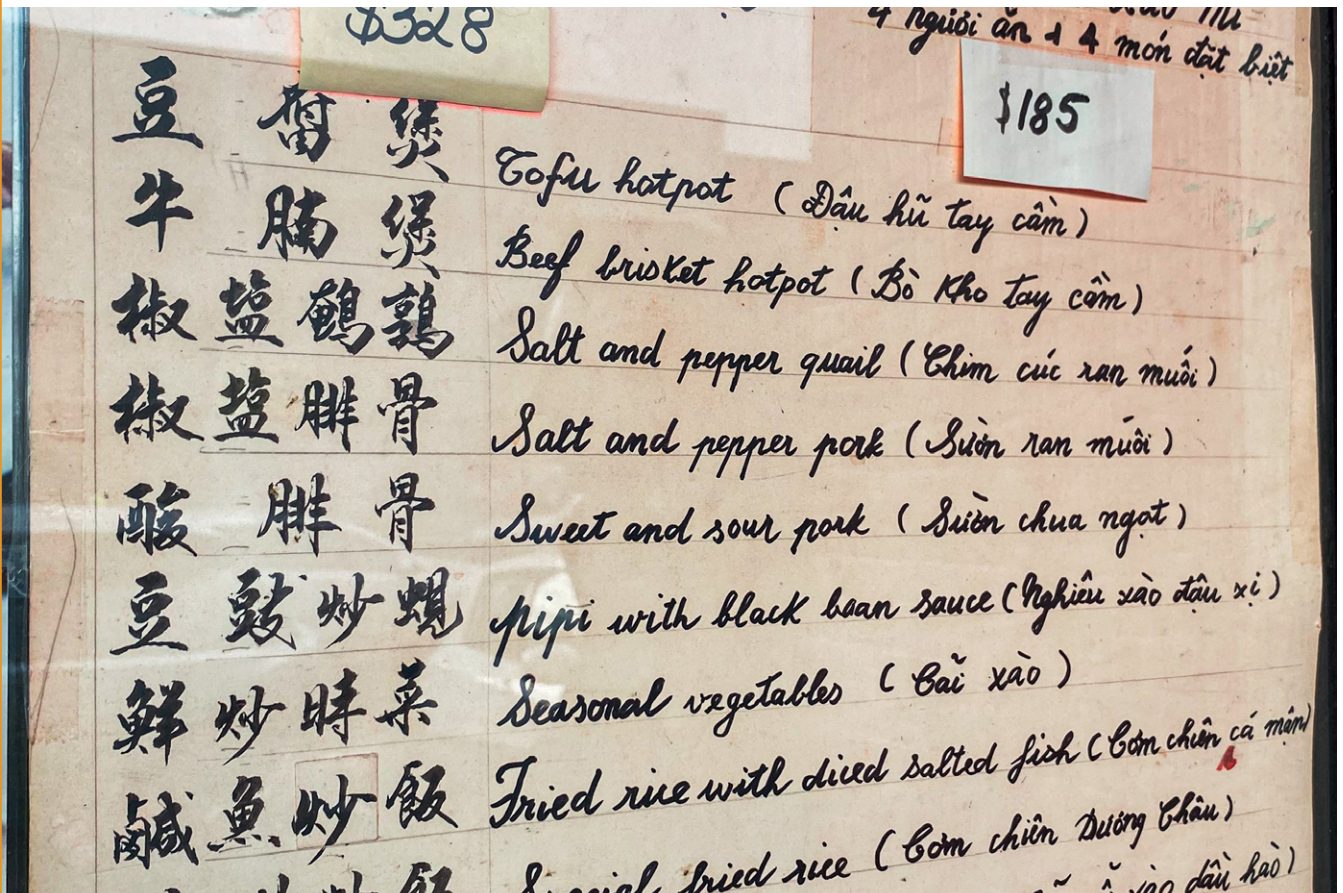 $328
4 người ăn + 4 món đặt biệt
$185
豆腐煲 Tofu hotpot (Đậu hũ tay cầm)
牛腩煲 Beef brisket hotpot (Bò kho tay cầm)
椒塩鵪鶉 Salt and pepper quail (Chim cúc ran muối)
椒塩腓骨 Salt and pepper pork (Sườn ran muối)
酸腓骨 Sweet and sour pork (Sườn chua ngọt)
豆豉炒蜆 pipi with black baan sauce (Nghiêu xào đậu xị)
鮮炒時菜 Seasonal vegetables (Cãi xào)
鹹魚炒飯 Fried rice with diced salted fish (Cơm chiên cá mặn)
炒飯 Special fried rice (Cơm chiên Dương Châu)
xào dầu hào)